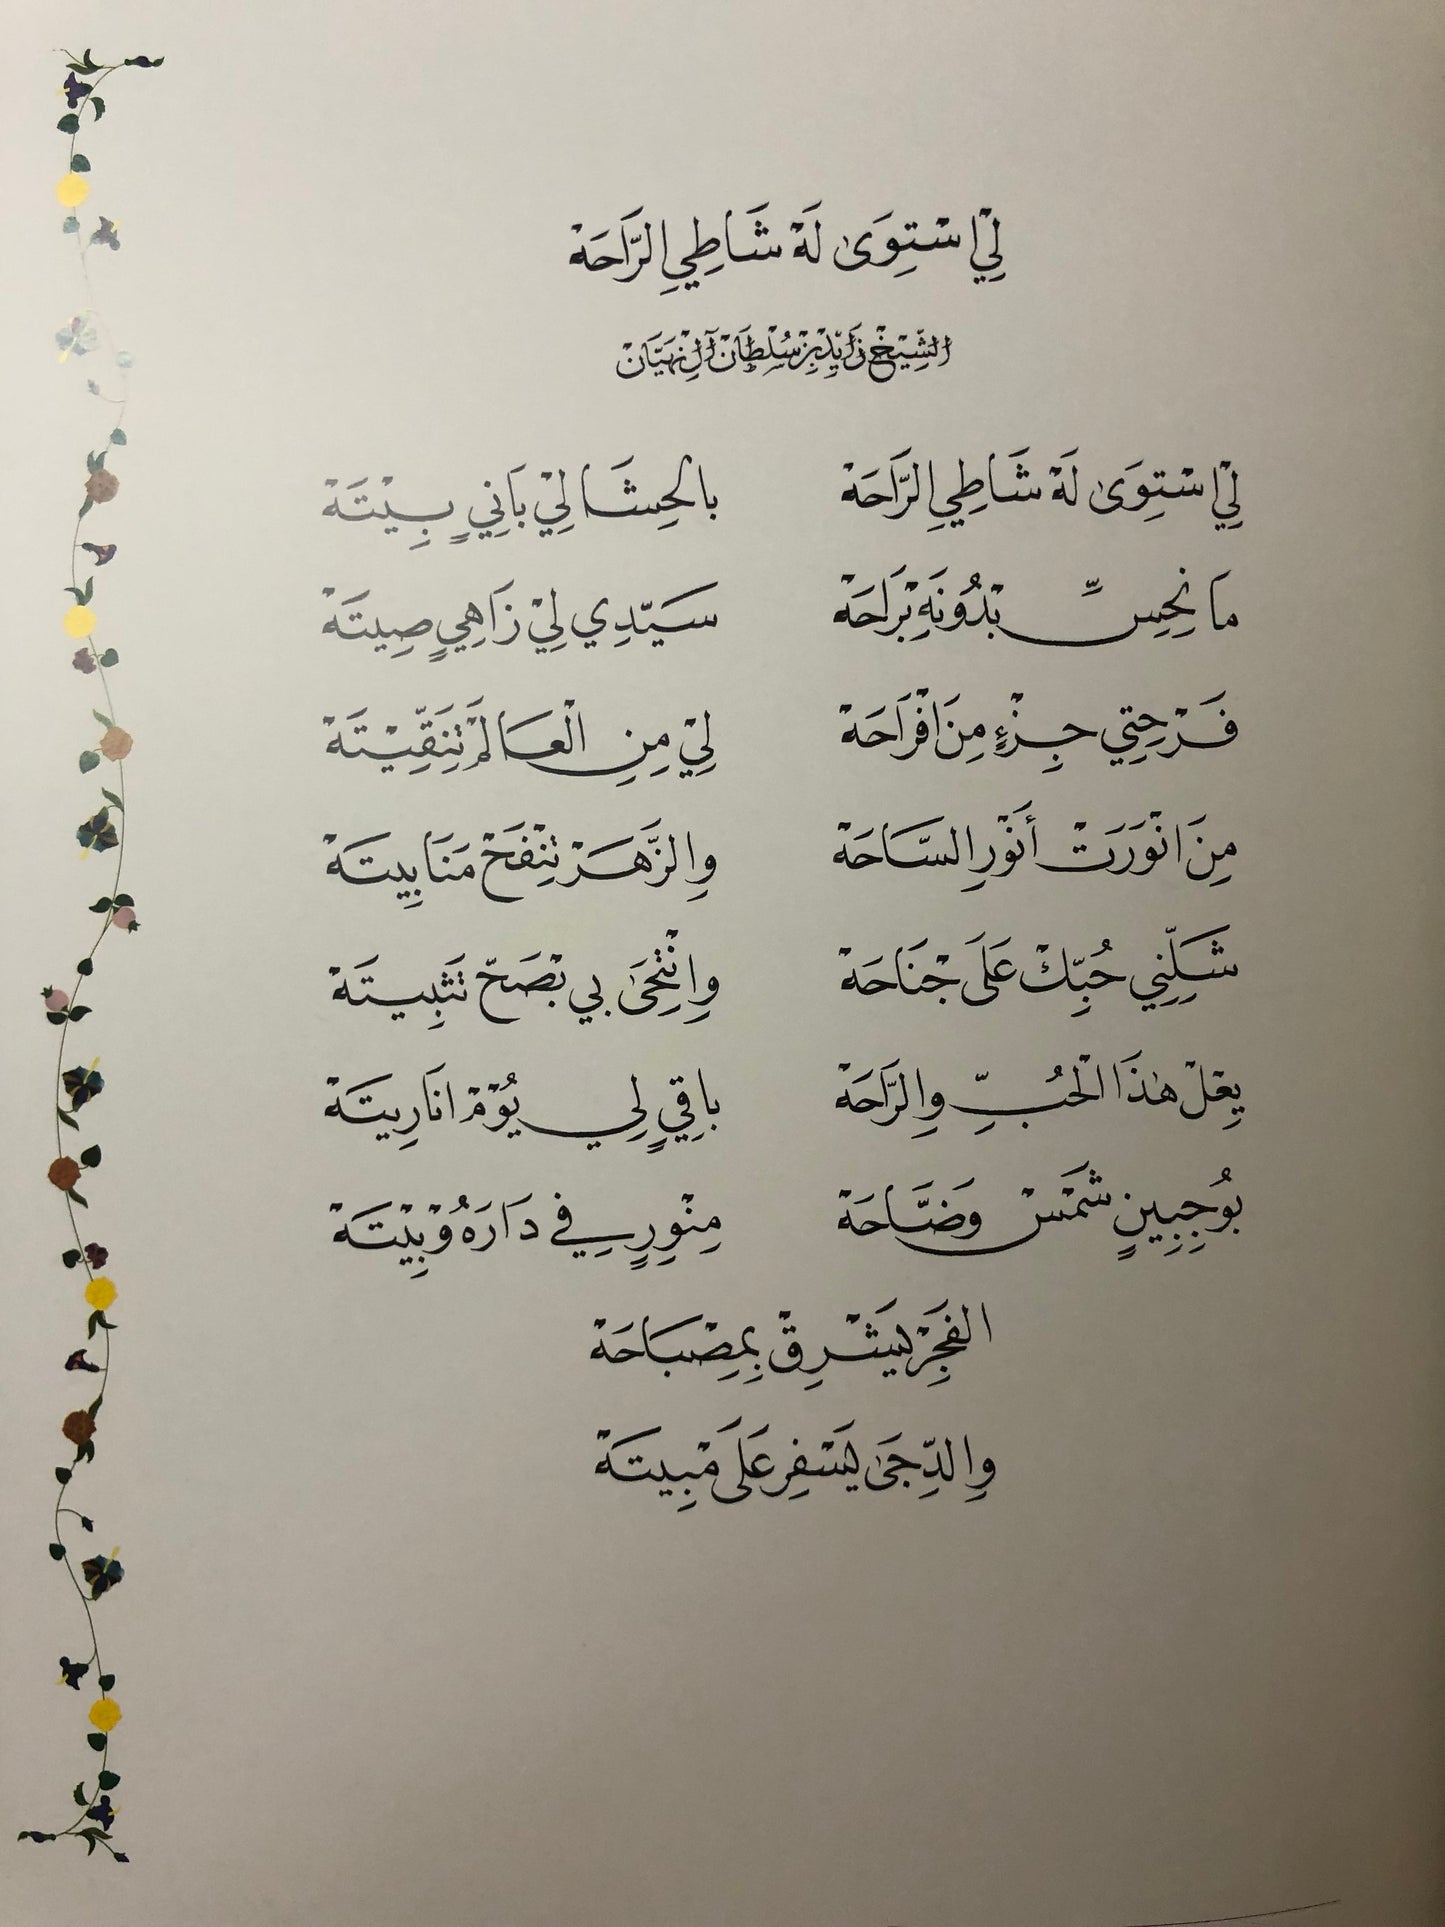 لِيْ اسْتِوَىٰ لَهْ شَاطِي الرَّاحَهْ
الشِّيْخْ زَايِدْ بِنْ سُلْطَانْ آلْ نِهَيَّانْ
لِيْ اسْتِوَىٰ لَهْ شَاطِي الرَّاحَهْ بالحِشَا لِيْ بَانِيٍ بِيْتَهْ
مَا نِحِسِّ بْدُونَهِ بْرَاحَهْ سَيِّدِي لِيْ زَاهِيٍ صِيتَهْ
فَرْحِتِي جِزْءٍ مِنَ افْرَاحَهْ لِيْ مِنِ الْعَالَمْ تِنَقِّيْتَهْ
مِنَ انْوَرَتْ أَنْوَرِ السَّاحَهْ وِالزَّهَرْ تِنْفَحْ مَنَابِيتَهْ
شَلِّنِي حُبِّكْ عَلَىٰ جْنَاحَهْ وِانْتِحَىٰ بي بْصَحّ تَثْبِيتَهْ
يِعْلْ هٰذَا الْحُبِّ وِالرَّاحَهْ بَاقِيٍ لِي يُوْمْ انَا رِيتَهْ
بُوجِبِينٍ شَمْسْ وَضَّاحَهْ مِنْوِرٍ فِي دَارَهْ وُبِيْتَهْ
الفَجِرْ يَشْرِقْ بِمِصْبَاحَهْ
وِالدِّجَىٰ يَسْفِرْ عَلَىٰ مْبِيتَهْ